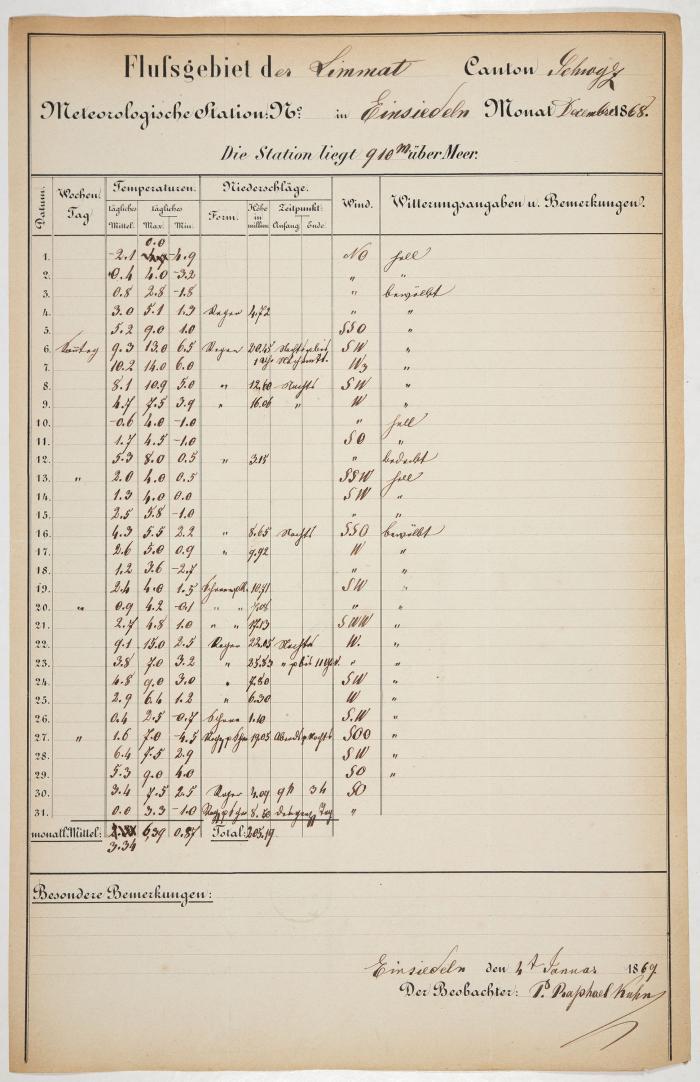 Flußgebiet der Limmat Canton Schwyz
Meteorologische Station: No. in Einsiedeln Monat Decembre 1868.
Die Station liegt 910 m über Meer.
Datum. Wochen Tag Temperaturen. Niederschläge. Wind. Witterungsangaben u. Bemerkungen.
tägliches Mittel. tägliches Max. Min. Form. Höhe in millim. Zeitpunkt: Anfang Ende
0.0
1. -2.1 -4.9 NO hell
2. 0.4 4.0 -3.2 " "
3. 0.8 2.8 -1.8 " bewölkt
4. 3.0 5.1 1.3 Regen 4.72 "
5. 5.2 9.0 1.0 SSO "
6. Sonntag 9.3 13.0 6.5 Regen 20.45 SW "
7. 10.2 14.0 6.0 "
8. 8.1 10.9 5.0 " 12.60 Nachts SW "
9. 4.7 7.5 3.9 " 16.06 " W "
10. -0.6 4.0 -1.0 " hell
11. 1.7 4.5 -1.0 SO "
12. 5.3 8.0 0.5 " 3.18 " bedeckt
13. " 2.0 4.0 0.5 SSW hell
14. 1.3 4.0 0.0 SW "
15. 2.5 5.8 -1.0 " "
16. 4.3 5.5 2.2 " 8.65 Nachts SSO bewölkt
17. 2.6 5.0 0.9 " 9.92 W "
18. 1.2 3.6 -2.7 " "
19. 2.4 4.0 1.5 10.71 SW "
20. " 0.9 4.2 -0.1 " " " "
21. 2.7 4.8 1.0 " " 17.13 SWW "
22. 9.1 15.0 2.5 Regen 22.05 Nachts W. "
23. 3.8 7.0 3.2 " 25.83 " "
24. 4.8 9.0 3.0 " 7.80 SW "
25. 2.9 6.4 1.2 " 6.30 W "
26. 0.4 2.5 -0.7 Schnee 1.10 S.W "
27. " 1.6 7.0 -4.5 19.05 Abends u Nachts SOO "
28. 6.4 7.5 2.9 SW "
29. 5.3 9.0 4.0 SO "
30. 3.4 7.5 2.5 Regen 4.09 9h 3h SO
31. 0.0 3.3 -1.0 8.50 "
monatl. Mittel: 6,39 0.87 Total: 205.19
3.34
Besondere Bemerkungen:
Einsiedeln den Januar 1869
Der Beobachter: P. Raphael Kuhn